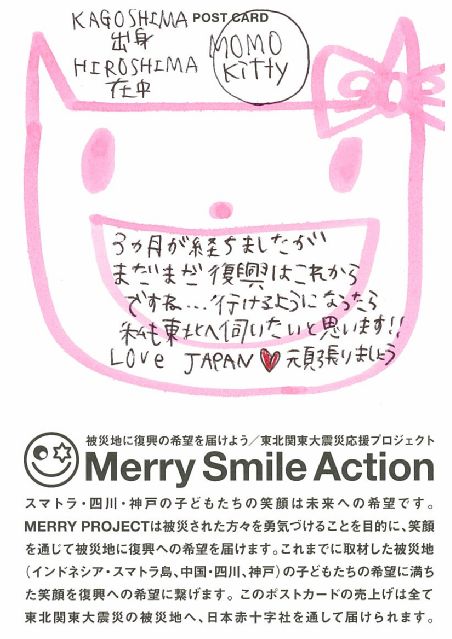 KAGOSHIMA
出身
HIROSHIMA
在中
POST CARD
MOMO
kitty
3カ月が経ちましたが
まだまだ復興はこれから
ですね...行けるようになったら
私も東北へ伺いたいと思います!!
LOVE JAPAN♥頑張りましょう
被災地に復興の希望を届けよう／東北関東大震災応援プロジェクト
Merry Smile Action
スマトラ・四川・神戸の子どもたちの笑顔は未来への希望です。
MERRY PROJECTは被災された方々を勇気づけることを目的に、笑顔
を通じて被災地に復興への希望を届けます。これまでに取材した被災地
（インドネシア・スマトラ島、中国・四川、神戸）の子どもたちの希望に満ち
た笑顔を復興への希望に繋げます。このポストカードの売上げは全て
東北関東大震災の被災地へ、日本赤十字社を通して届けられます。